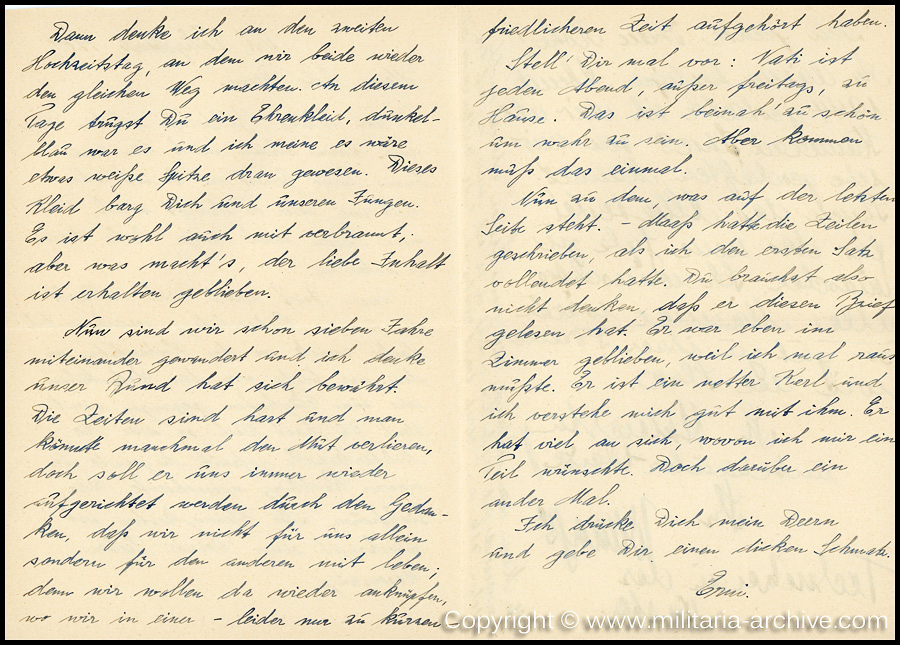 Dann denke ich an den zweiten
Hochzeitstag, an dem wir beide wieder
den gleichen Weg machten. An diesem
Tage trugst Du ein Ehrenkleid, dunkel-
blau war es und ich meine es wäre
etwas weiße Spitze dran gewesen. Dieses
Kleid barg Dich und unseren Jungen.
Es ist wohl auch mit verbrannt,
aber was macht's, der liebe Inhalt
ist erhalten geblieben.
Nun sind wir schon sieben Jahre
miteinander gewandert und ich denke
unser Bund hat sich bewährt.
Die Zeiten sind hart und man
könnte manchmal den Mut verlieren,
doch soll er uns immer wieder
aufgerichtet werden durch den Gedan-
ken, daß wir nicht für uns allein
sondern für den anderen mit leben;
denn wir wollen da wieder anknüpfen,
wo wir in einer - leider nur zu kurzen
friedlicheren Zeit aufgehört haben.
Stell' Dir mal vor: Vati ist
jeden Abend, außer freitags, zu
Hause. Das ist beinah' zu schön
um wahr zu sein. Aber kommen
muß das einmal.
Nun zu dem, was auf der letzten
Seite steht. - Maaß hatte die Zeilen
geschrieben, als ich den ersten Satz
vollendet hatte. Du brauchst also
nicht denken, daß er diesen Brief
gelesen hat. Er war eben im
Zimmer geblieben, weil ich mal raus
mußte. Er ist ein netter Kerl und
ich verstehe mich gut mit ihm. Er
hat viel an sich, wovon ich mir ein
Teil wünschte. Doch darüber ein
ander Mal.
Ich drücke Dich mein Deern
und gebe Dir einen dicken Schmatz.
Erni.
Copyright © www.militaria-archive.com